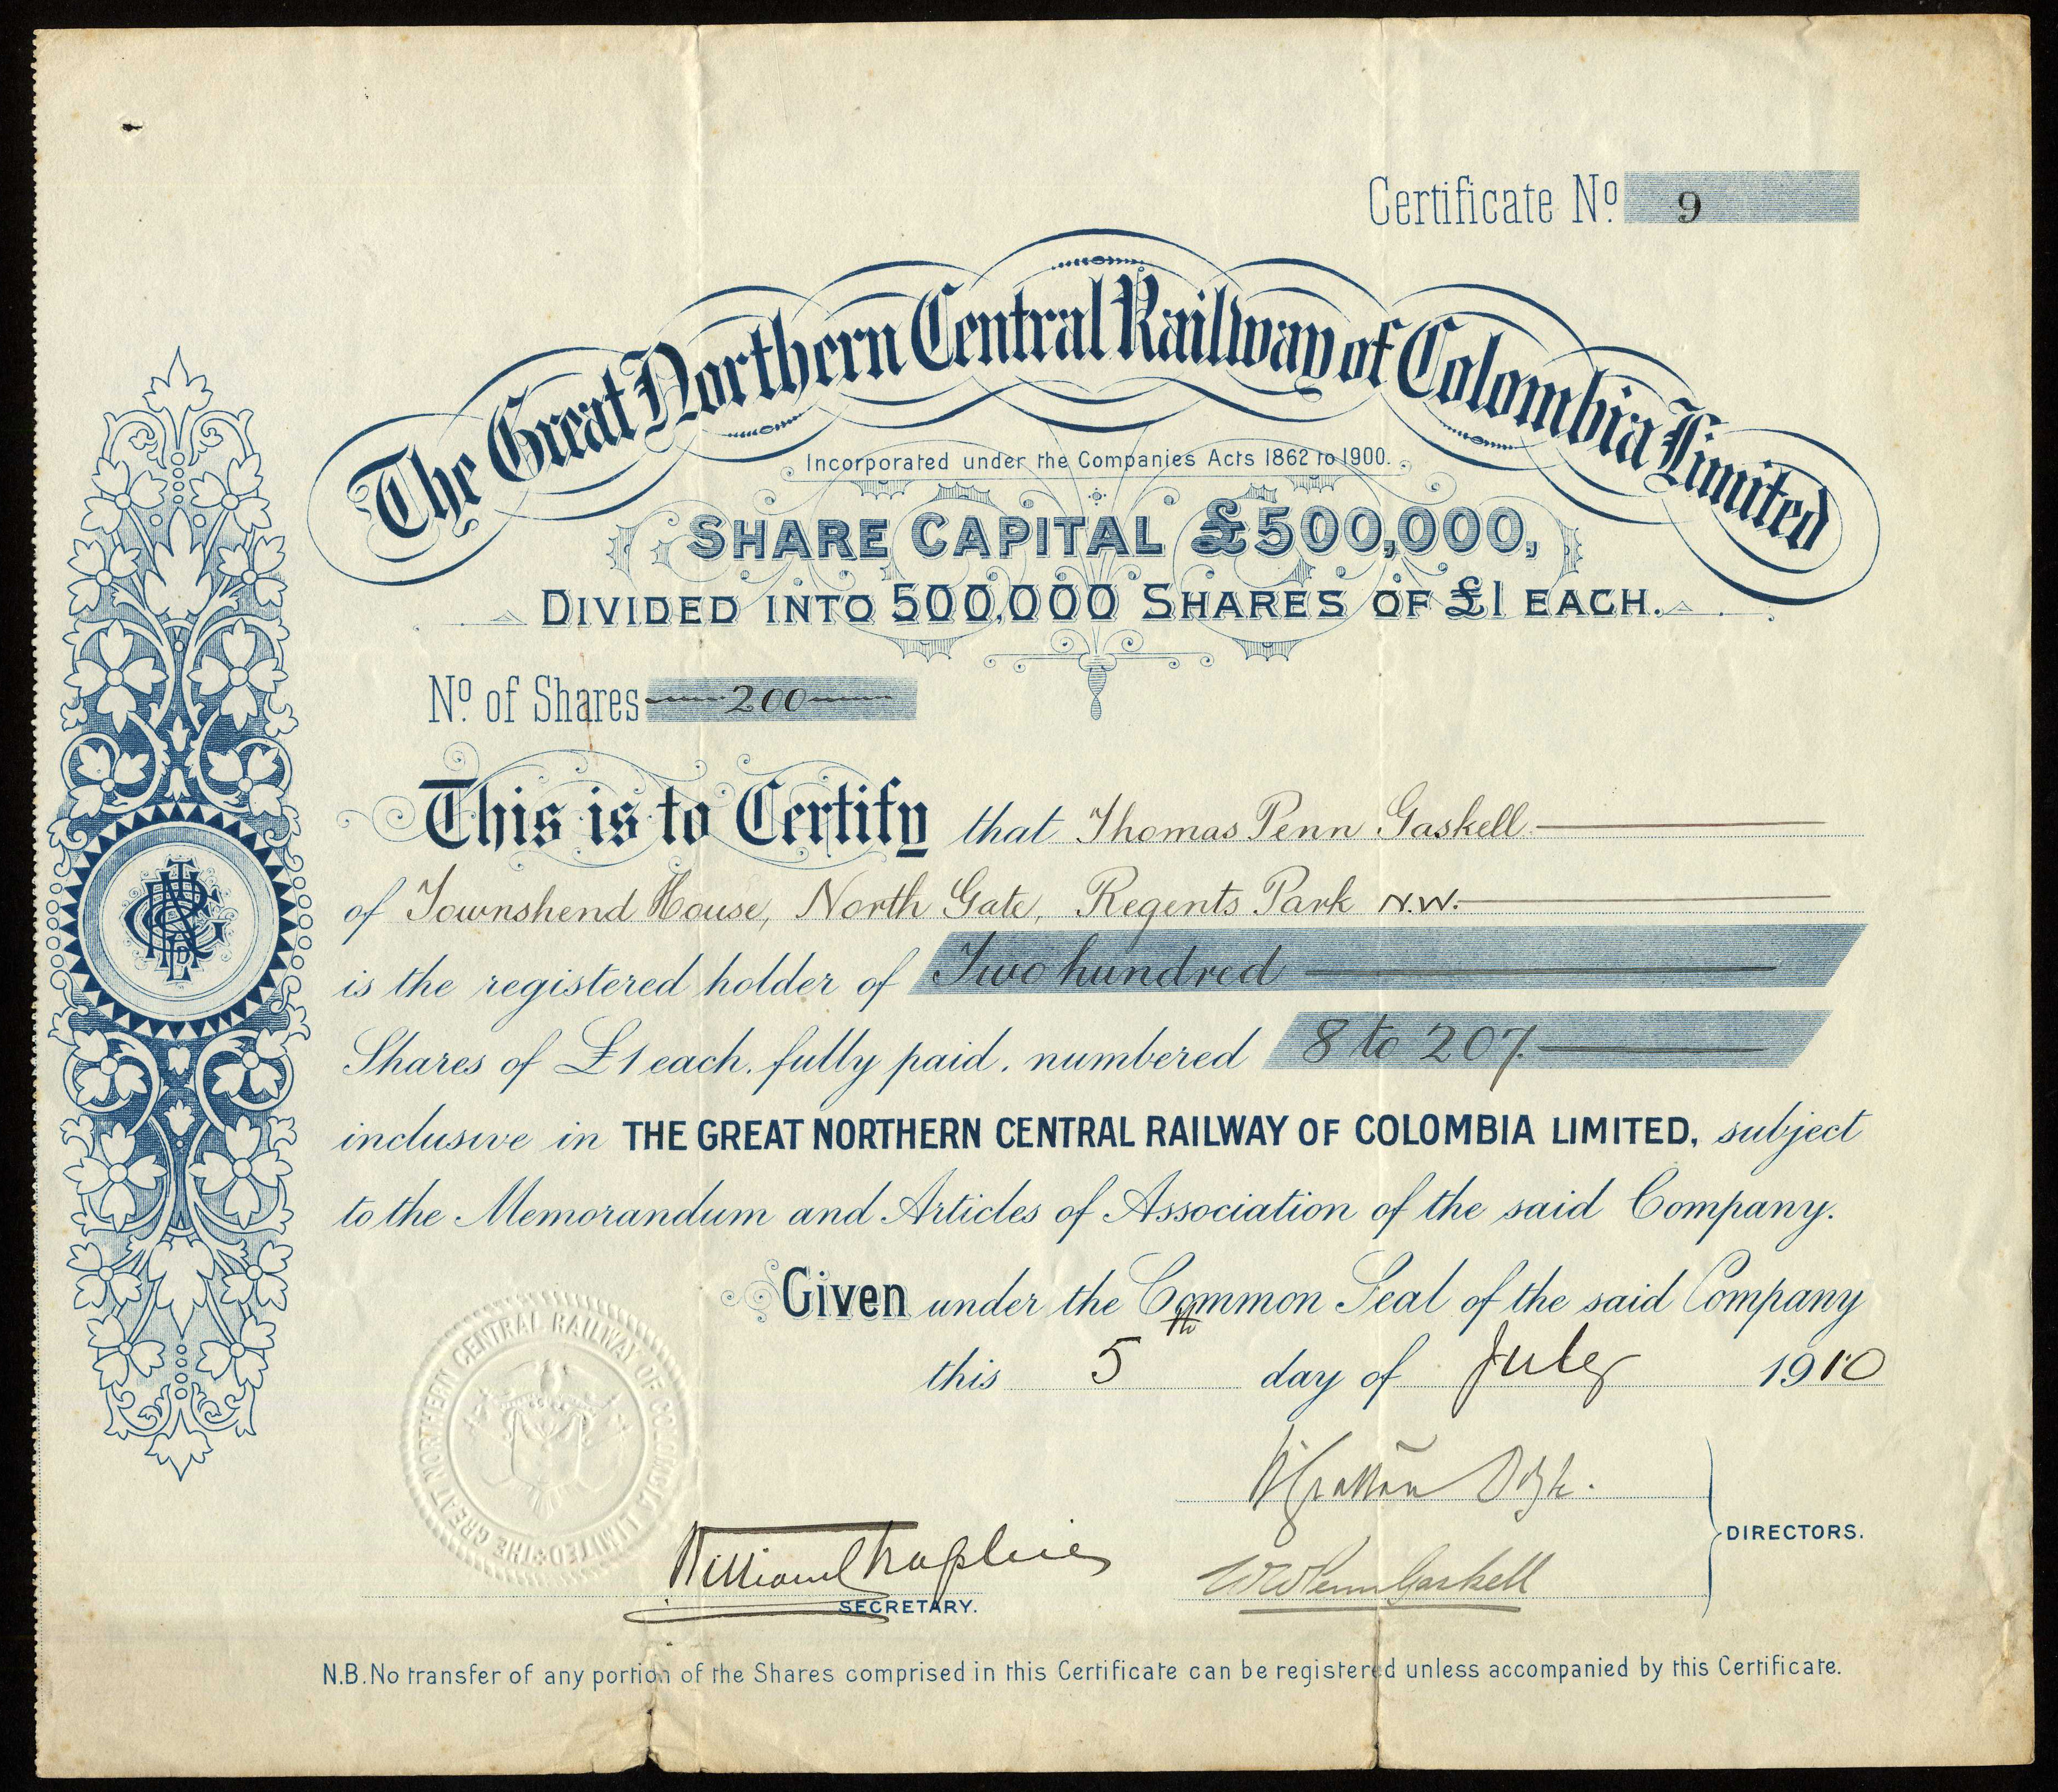 Certificate Nº 9
The Great Northern Central Railway of Colombia Limited
Incorporated under the Companies Acts 1862 to 1900.
SHARE CAPITAL £500,000,
DIVIDED INTO 500,000 SHARES OF £1 EACH.
Nº of Shares 200
This is to Certify that Thomas Penn Gaskell
of Townshend House, North Gate, Regents Park N.W.
is the registered holder of Two hundred
Shares of £1 each, fully paid, numbered 8 to 207
inclusive in THE GREAT NORTHERN CENTRAL RAILWAY OF COLOMBIA LIMITED, subject
to the Memorandum and Articles of Association of the said Company.
Given under the Common Seal of the said Company
this 5th day of July 1910
THE GREAT NORTHERN CENTRAL RAILWAY OF COLOMBIA LIMITED
DIRECTORS.
W Penn Gaskell
William
SECRETARY.
N.B. No transfer of any portion of the Shares comprised in this Certificate can be registered unless accompanied by this Certificate.